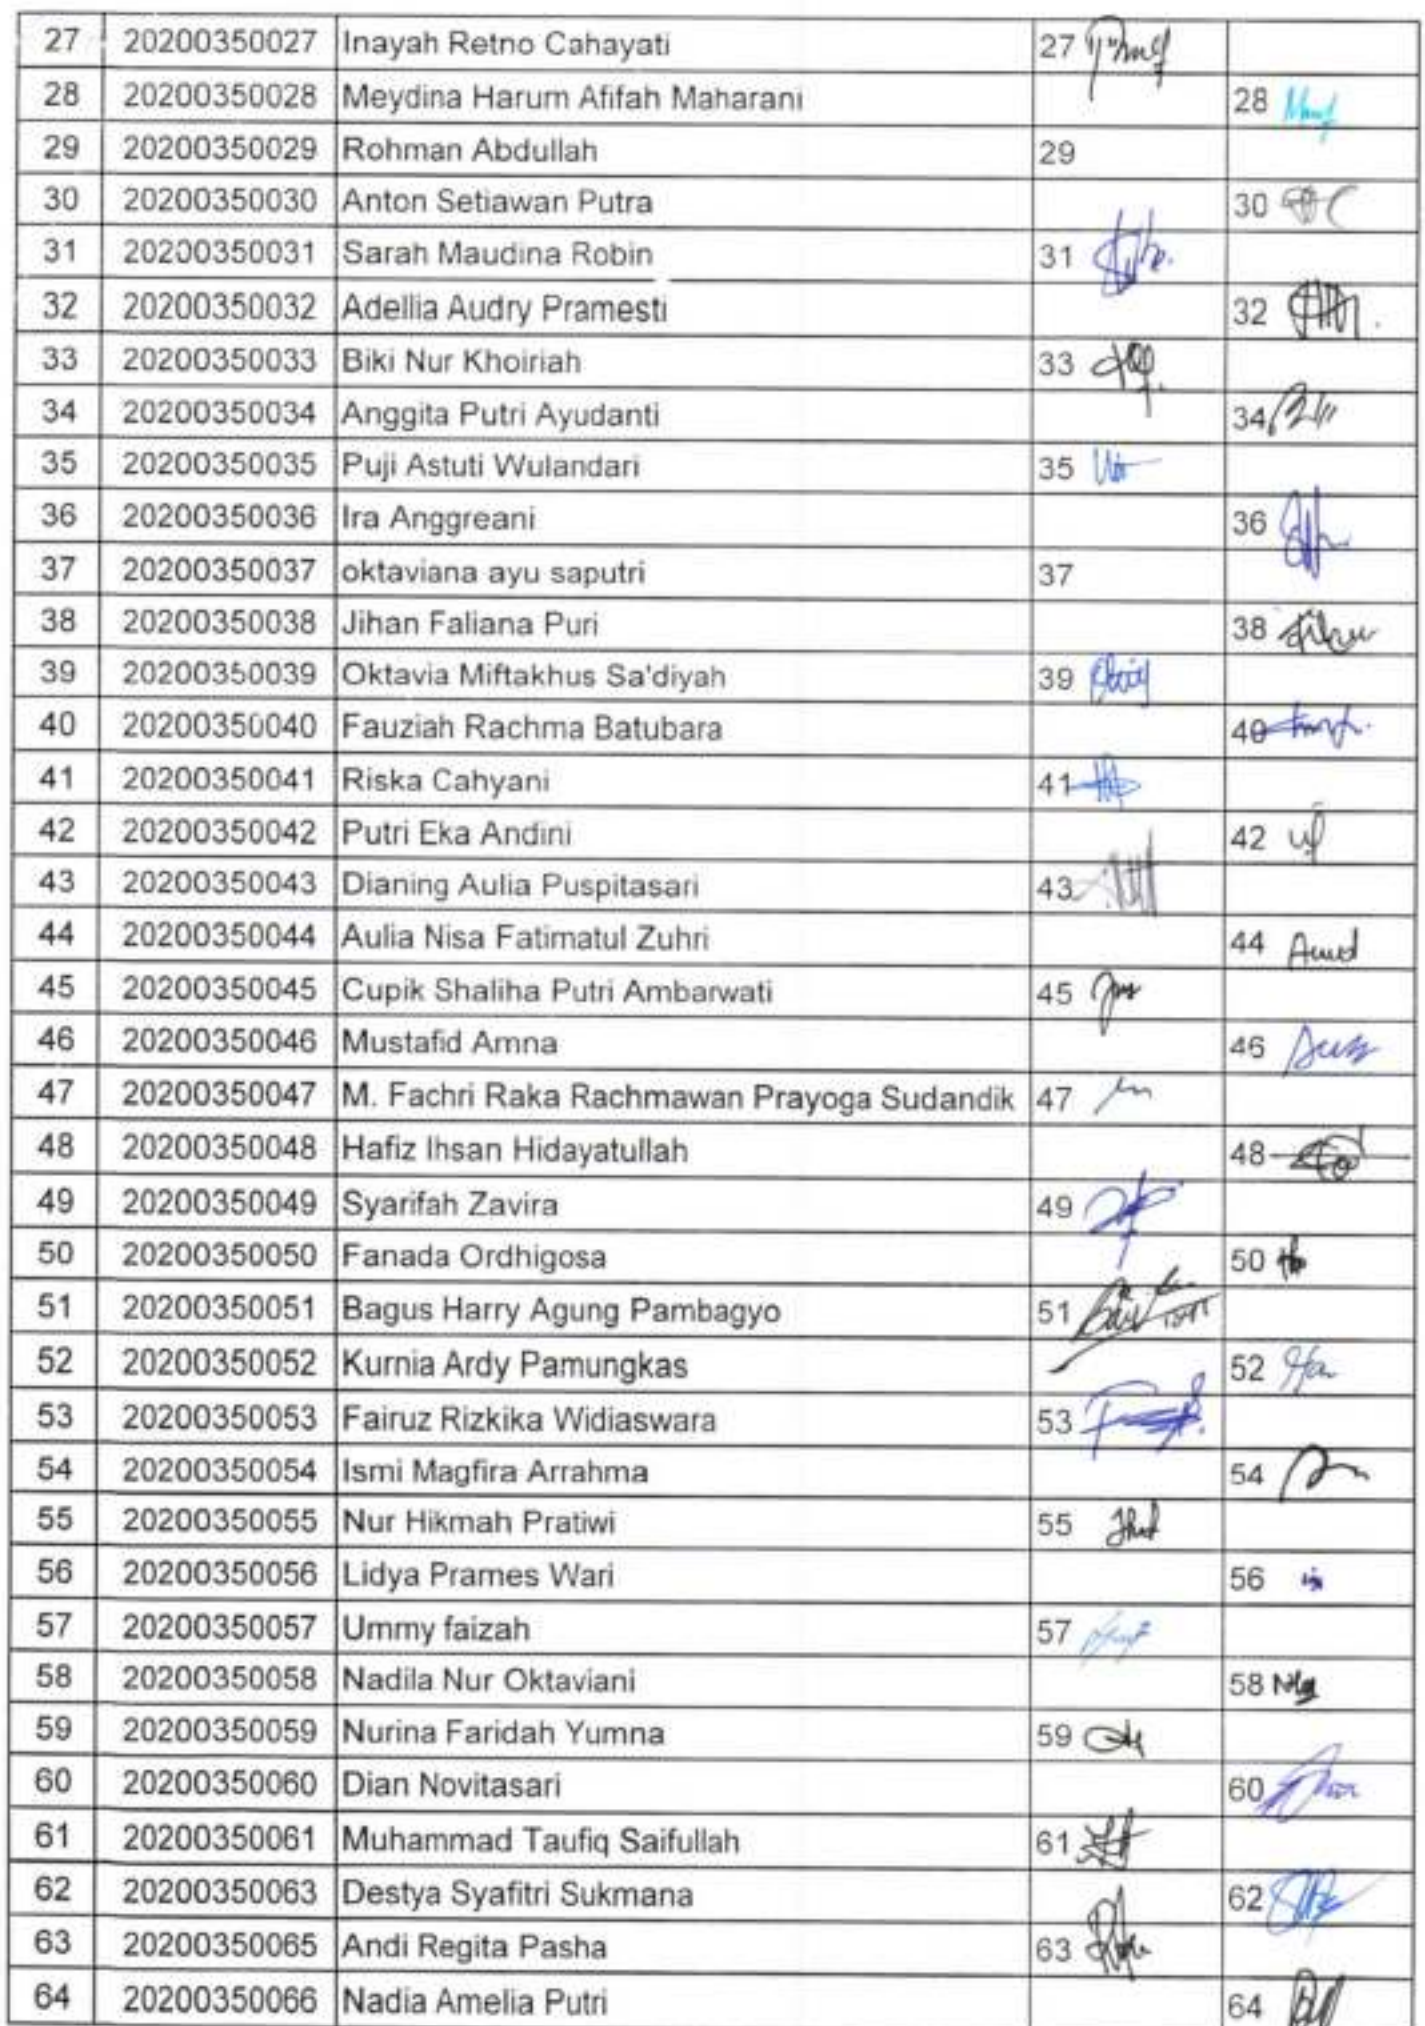 27 20200350027 Inayah Retno Cahayati 27
28 20200350028 Meydina Harum Afifah Maharani 28
29 20200350029 Rohman Abdullah 29
30 20200350030 Anton Setiawan Putra 30
31 20200350031 Sarah Maudina Robin 31
32 20200350032 Adellia Audry Pramesti 32
33 20200350033 Biki Nur Khoiriah 33
34 20200350034 Anggita Putri Ayudanti 34
35 20200350035 Puji Astuti Wulandari 35
36 20200350036 Ira Anggreani 36
37 20200350037 oktaviana ayu saputri 37
38 20200350038 Jihan Faliana Puri 38
39 20200350039 Oktavia Miftakhus Sa'diyah 39
40 20200350040 Fauziah Rachma Batubara 40
41 20200350041 Riska Cahyani 41
42 20200350042 Putri Eka Andini 42
43 20200350043 Dianing Aulia Puspitasari 43
44 20200350044 Aulia Nisa Fatimatul Zuhri 44
45 20200350045 Cupik Shaliha Putri Ambarwati 45
46 20200350046 Mustafid Amna 46
47 20200350047 M. Fachri Raka Rachmawan Prayoga Sudandik 47
48 20200350048 Hafiz Ihsan Hidayatullah 48
49 20200350049 Syarifah Zavira 49
50 20200350050 Fanada Ordhigosa 50
51 20200350051 Bagus Harry Agung Pambagyo 51
52 20200350052 Kurnia Ardy Pamungkas 52
53 20200350053 Fairuz Rizkika Widiaswara 53
54 20200350054 Ismi Magfira Arrahma 54
55 20200350055 Nur Hikmah Pratiwi 55
56 20200350056 Lidya Prames Wari 56
57 20200350057 Ummy faizah 57
58 20200350058 Nadila Nur Oktaviani 58
59 20200350059 Nurina Faridah Yumna 59
60 20200350060 Dian Novitasari 60
61 20200350061 Muhammad Taufiq Saifullah 61
62 20200350063 Destya Syafitri Sukmana 62
63 20200350065 Andi Regita Pasha 63
64 20200350066 Nadia Amelia Putri 64